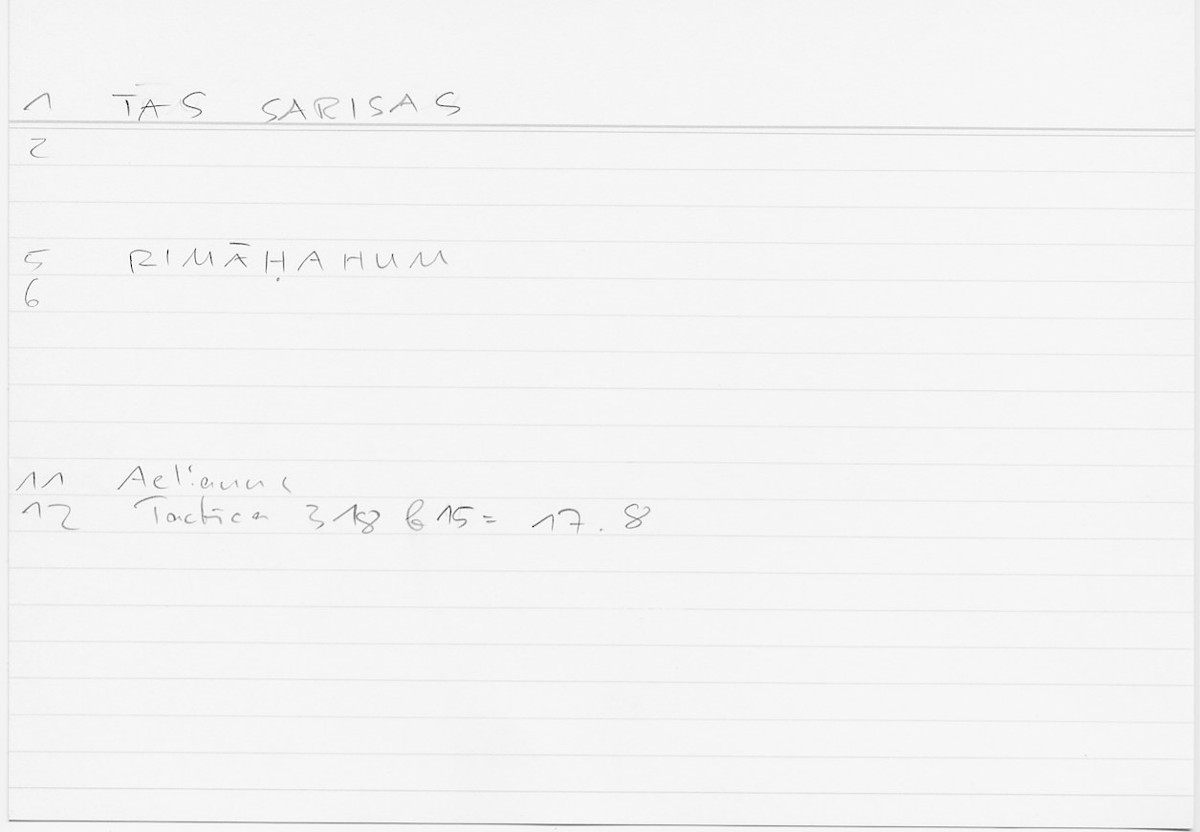 1 TAS SARISAS
2
5 RIMĀḤAHUM
6
11 Aelianus
12 Tactica 318 b 15 = 17.8